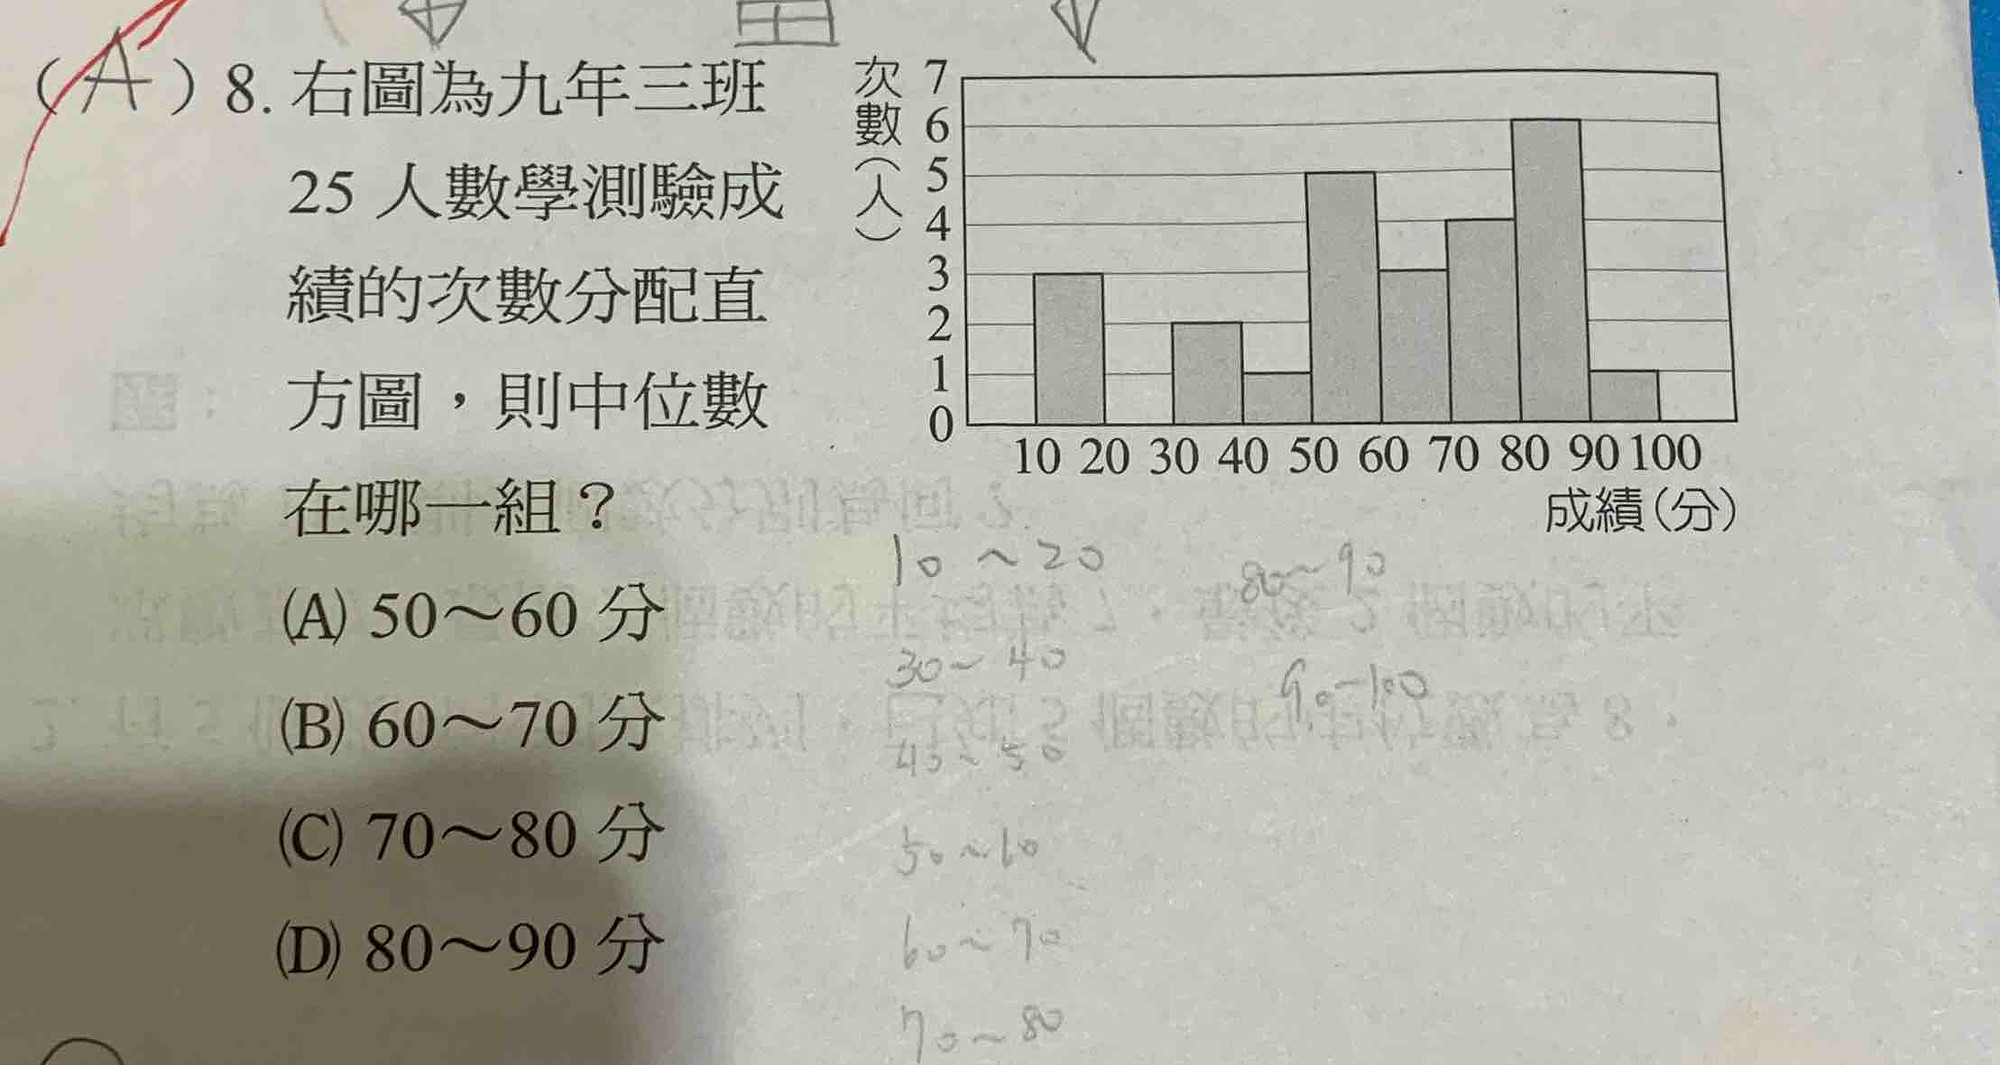 (A) 8. 右圖為九年三班
25 人數學測驗成
績的次數分配直
方圖，則中位數
在哪一組？
(A) 50～60 分
(B) 60～70 分
(C) 70～80 分
(D) 80～90 分
次數(人)
7
6
5
4
3
2
1
0
10 20 30 40 50 60 70 80 90 100
成績(分)
10 ~ 20
30 ~ 40
40 ~ 50
50 ~ 60
60 ~ 70
70 ~ 80
80 ~ 90
90 - 100